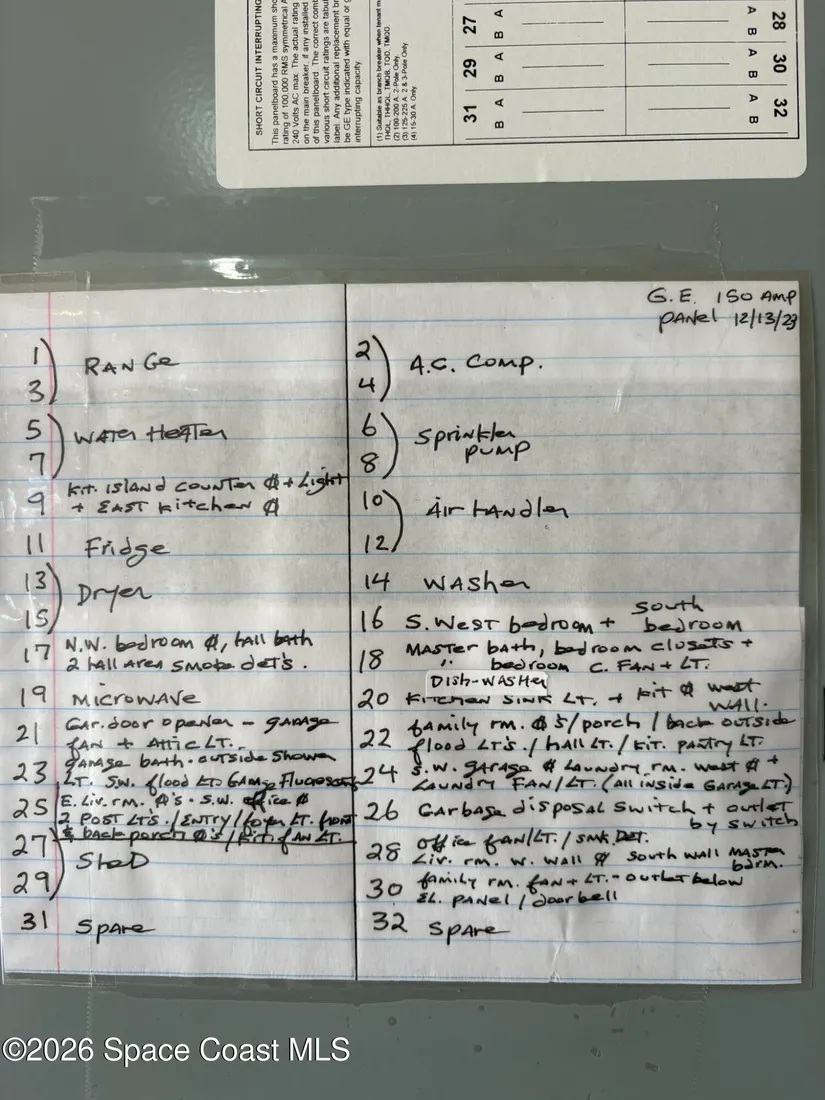 SHORT CIRCUIT INTERRUPTING
This panelboard has a maximum sho
rating of 100,000 RMS symmetrical A
240 Volts AC max. The actual rating
on the main breaker, if any installed
of this panelboard. The correct comb
various short circuit ratings are tabul
label. Any additional replacement br
be GE type indicated with equal or g
interrupting capacity
(1) Suitable as branch breaker when tenant m
THQL, THHQL, TMQB, TQD, TMQD.
(2) 100-200 A. 2-Pole Only
(3) 125-225 A. 2 & 3-Pole Only
(4) 15-30 A. Only.
27 A B 28
29 A B 30
31 A B 32
G.E. 150 AMP
PANEL 12/13/23
1
3) RANGE
5
7) WATER HEATER
9 KIT. ISLAND COUNTER ₵ + Light
+ EAST KITCHEN ₵
11 Fridge
13
15) Dryer
17 N.W. bedroom ₵, hall bath
2 hall AREA SMOKE det's.
19 MICROWAVE
21 GAR. door opener - GARAGE
FAN + Attic LT.
23 GARAGE bath - outside Shower
LT. SW. flood LT.
25 E. Liv. rm. ₵'s - S.W. office ₵
2 POST LT'S./ENTRY/foyer LT. front
& back porch ₵'s/Kit. fAN LT.
27
29) SheD
31 SPARE
2
4) A.C. COMP.
6
8) Sprinkler
pump
10
12) Air HANdler
14 WASHER
16 S. West bedroom + South
bedroom
18 MASTER bath, bedroom closets +
" bedroom C. FAN + LT.
DISH-WASHER
20 KITCHEN SINK LT. + Kit ₵ west
WALL.
22 family rm. ₵'s/porch/back outside
flood LT'S./HALL LT./KIT. PANTRY LT.
24 S.W. GARAGE ₵ LAUNDRY rm. west ₵ +
LAUNDRY FAN/LT. (All inside GARAGE LT.)
26 GARBAGE disposal switch + outlet
by switch
28 Office fAN/LT./SMK. DET.
Liv. rm. W. WALL ₵ South wall MASTER
bdrm.
30 family rm. FAN + LT. - OUTLET below
EL. PANEL/doorbell
32 SPARE
©2026 Space Coast MLS